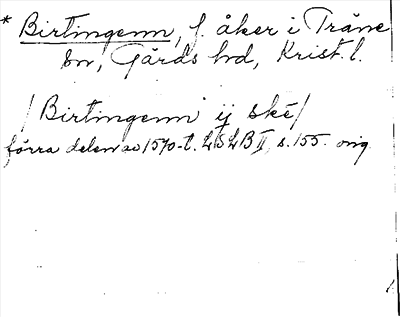 * Birtingenn, f. åker i Träne
sn, Gärds hd, Krist. l.
/ Birtingenn ij ske /
förra delen av 1570-t. LSLB II, s. 155. orig.